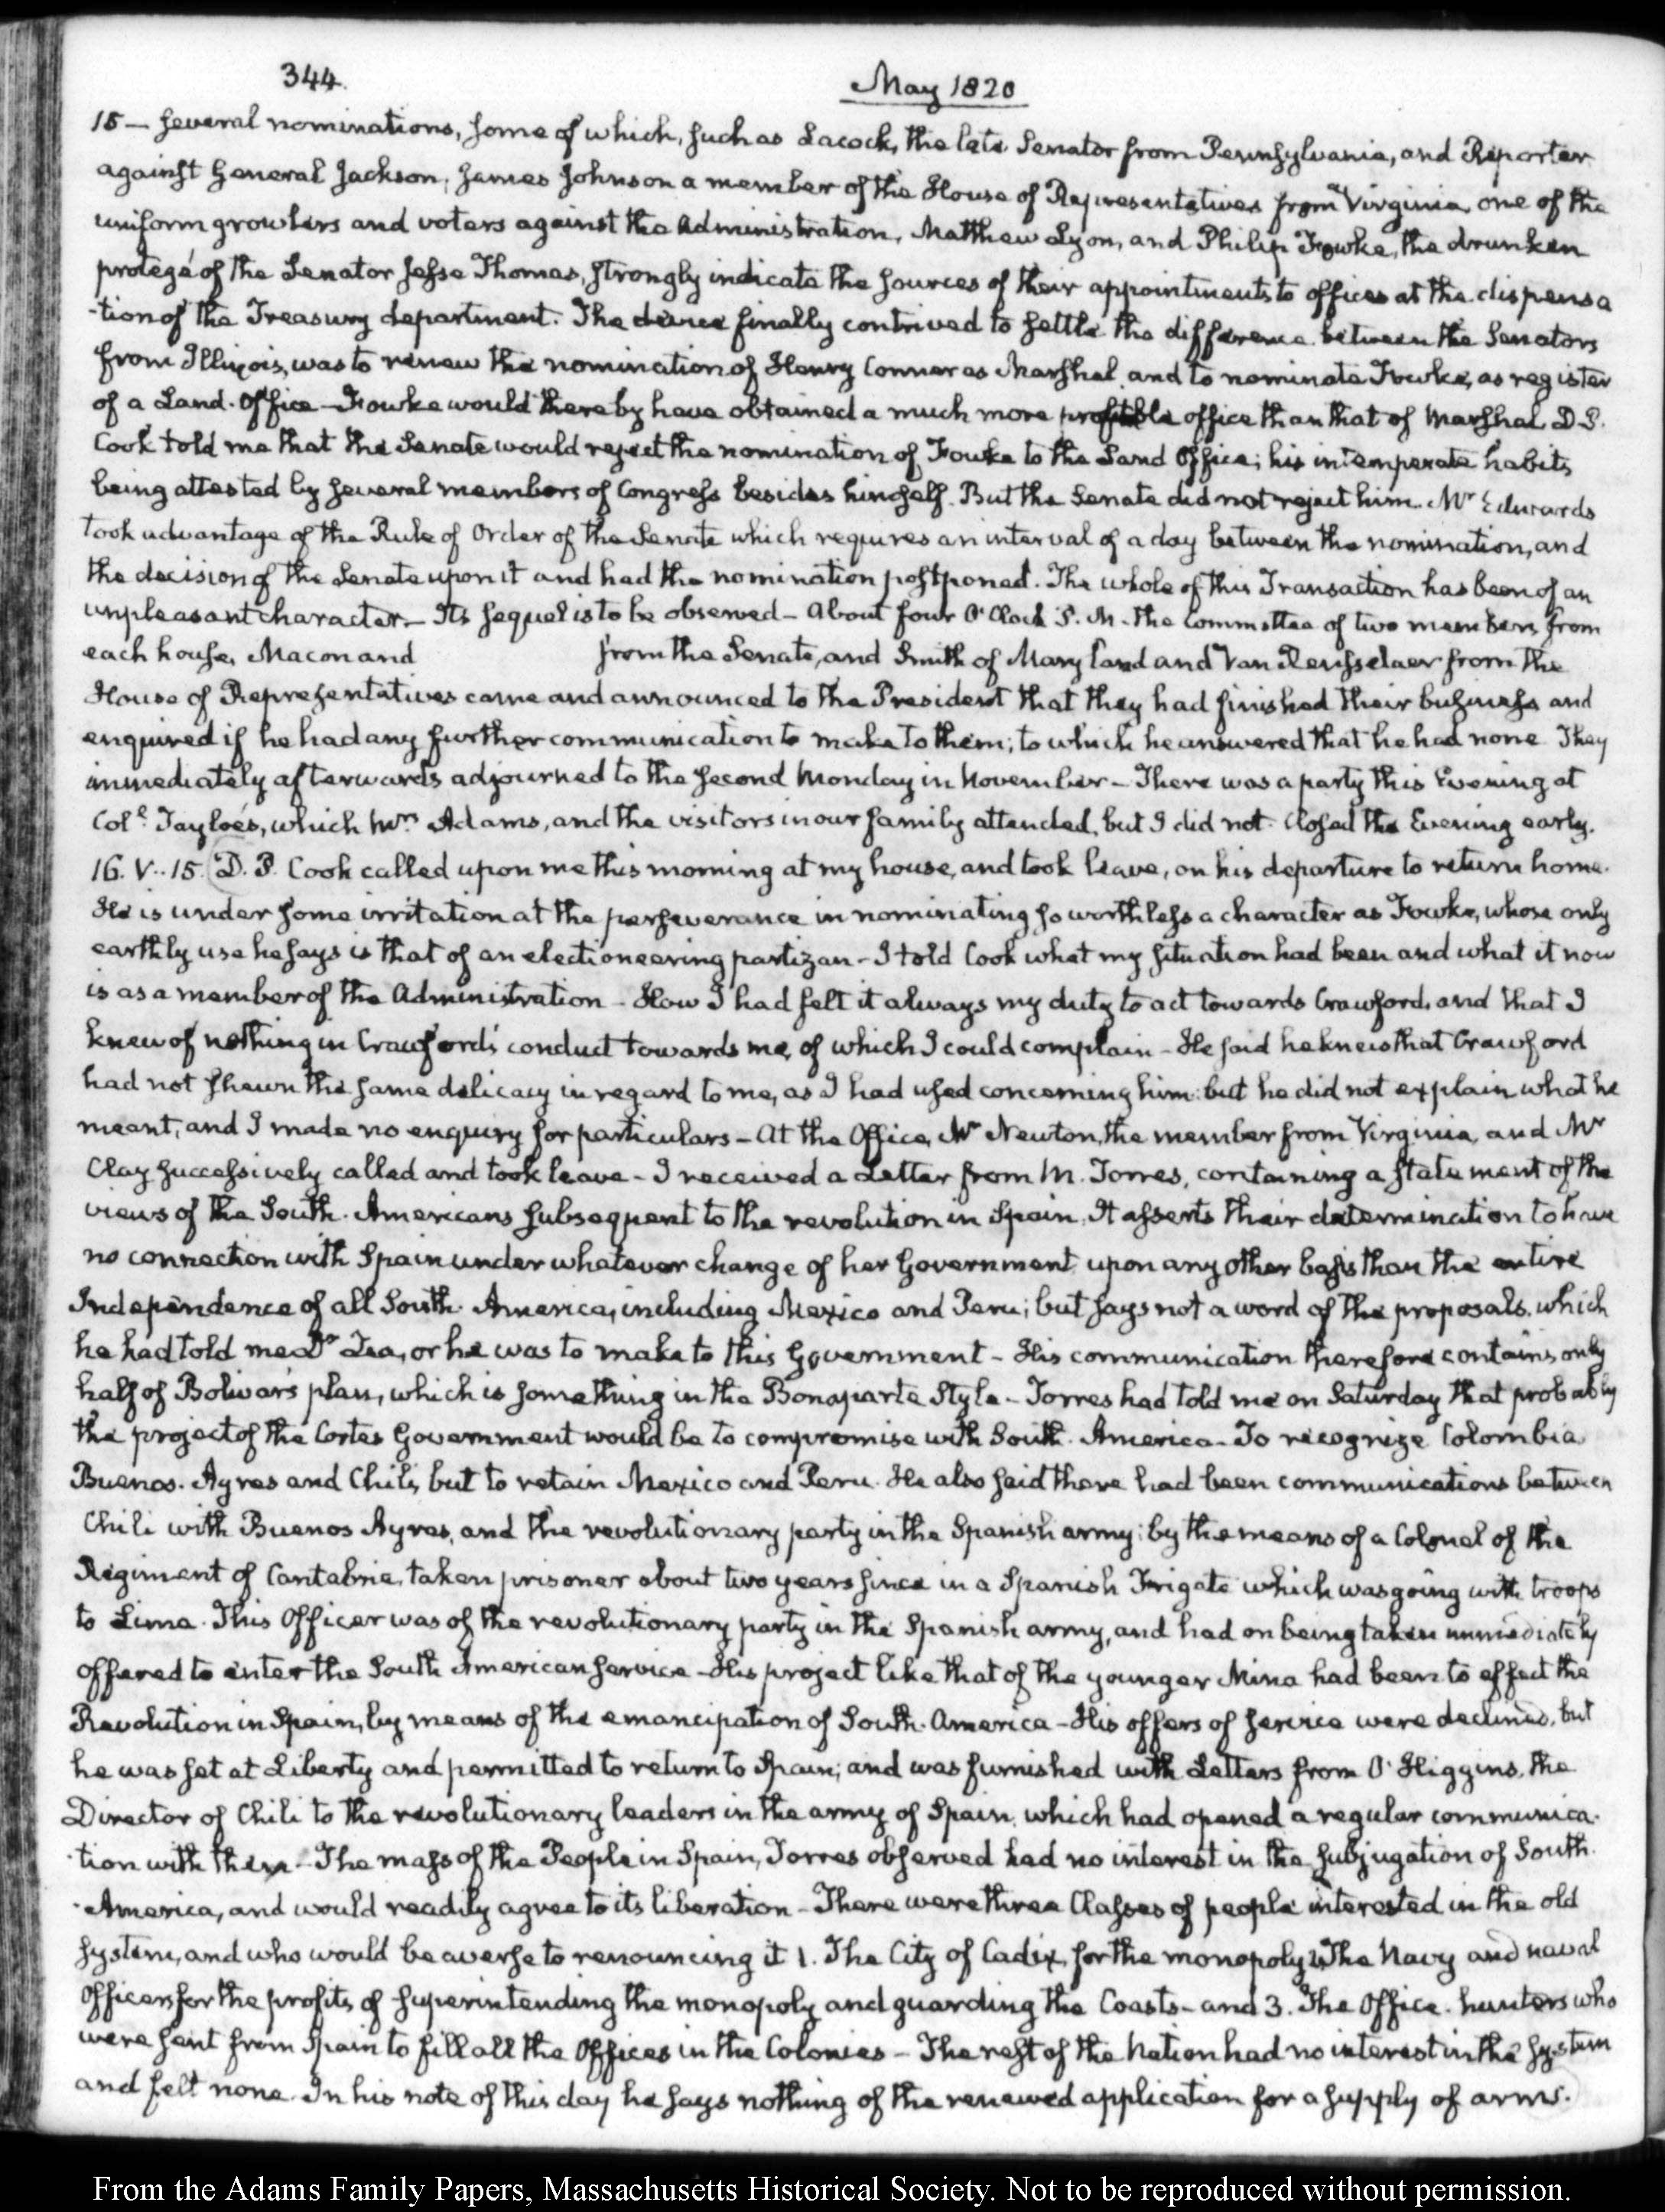 344.
May 1820
15 — Several nominations, some of which, such as Lacock, the late Senator from Pennsylvania, and Reporter
against General Jackson; James Johnson a member of the House of Representatives from Virginia, one of the
uniform growlers and voters against the Administration, Matthew Lyon, and Philip Fowke, the drunken
protegé of the Senator Jesse Thomas, strongly indicate the sources of their appointments to offices at the dispensa
-tion of the Treasury department. The device finally contrived to settle the difference between the Senators
from Illinois, was to renew the nomination of Henry Conner as Marshal and to nominate Fowke, as register
of a Land-Office — Fowke would thereby have obtained a much more profitable office than that of Marshal. D. P.
Cook told me that the Senate would reject the nomination of Fowke to the Land Office; his intemperate habits
being attested by several members of Congress besides himself. But the Senate did not reject him. Mr Edwards
took advantage of the Rule of Order of the Senate which requires an interval of a day between the nomination, and
the decision of the Senate upon it and had the nomination postponed. The whole of this Transaction has been of an
unpleasant character — Its sequel is to be observed — About four O'Clock P. M. the Committee of two members from
each house, Macon and from the Senate, and Smith of Maryland and Van Rensselaer from the
House of Representatives came and announced to the President that they had finished their business and
enquired if he had any further communication to make to them; to which he answered that he had none. They
immediately afterwards adjourned to the second Monday in November — There was a party this Evening at
Colo. Tayloe's, which Mrs Adams, and the visitors in our family attended, but I did not. Closed the Evening early.
16. V..15. D. P. Cook called upon me this morning at my house, and took leave, on his departure to return home.
He is under some irritation at the perseverance in nominating so worthless a character as Fowke, whose only
earthly use he says is that of an electioneering partizan — I told Cook what my situation had been and what it now
is as a member of the Administration — How I had felt it always my duty to act towards Crawford, and that I
knew of nothing in Crawford's conduct towards me, of which I could complain — He said he knew that Crawford
had not shewn the same delicacy in regard to me, as I had used concerning him: but he did not explain what he
meant, and I made no enquiry for particulars — At the Office, Mr Newton, the member from Virginia, and Mr
Clay successively called and took leave — I received a Letter from M. Torres, containing a statement of the
views of the South-Americans subsequent to the revolution in Spain. It asserts their determination to have
no connection with Spain under whatever change of her Government upon any other basis than the entire
Independence of all South-America, including Mexico and Peru; but says not a word of the proposals, which
he had told me Dr Zea, or he was to make to this Government — His communication therefore contains only
half of Bolivar's plan, which is something in the Bonaparte Style — Torres had told me on Saturday that probably
the project of the Cortes Government would be to compromise with South-America — To recognize Colombia
Buenos-Ayres and Chili, but to retain Mexico and Peru. He also said there had been communications between
Chili with Buenos Ayres, and the revolutionary party in the Spanish army; by the means of a Colonel of the
Regiment of Cantabria, taken prisoner about two years since in a Spanish Frigate which was going with troops
to Lima. This Officer was of the revolutionary party in the Spanish army, and had on being taken immediately
offered to enter the South American service — His project like that of the younger Mina had been to effect the
Revolution in Spain, by means of the emancipation of South-America — His offers of service were declined, but
he was set at Liberty and permitted to return to Spain; and was furnished with Letters from O'Higgins, the
Director of Chili to the revolutionary leaders in the army of Spain, which had opened a regular communica-
-tion with them — The mass of the People in Spain, Torres observed had no interest in the subjugation of South-
-America, and would readily agree to its liberation — There were three Classes of people interested in the old
system, and who would be averse to renouncing it 1. The City of Cadiz, for the monopoly 2. The Navy and naval
Officers for the profits of superintending the monopoly and guarding the Coasts — and 3. The Office-hunters who
were sent from Spain to fill all the Offices in the Colonies — The rest of the Nation had no interest in the system
and felt none. In his note of this day he says nothing of the renewed application for a supply of arms.
From the Adams Family Papers, Massachusetts Historical Society. Not to be reproduced without permission.